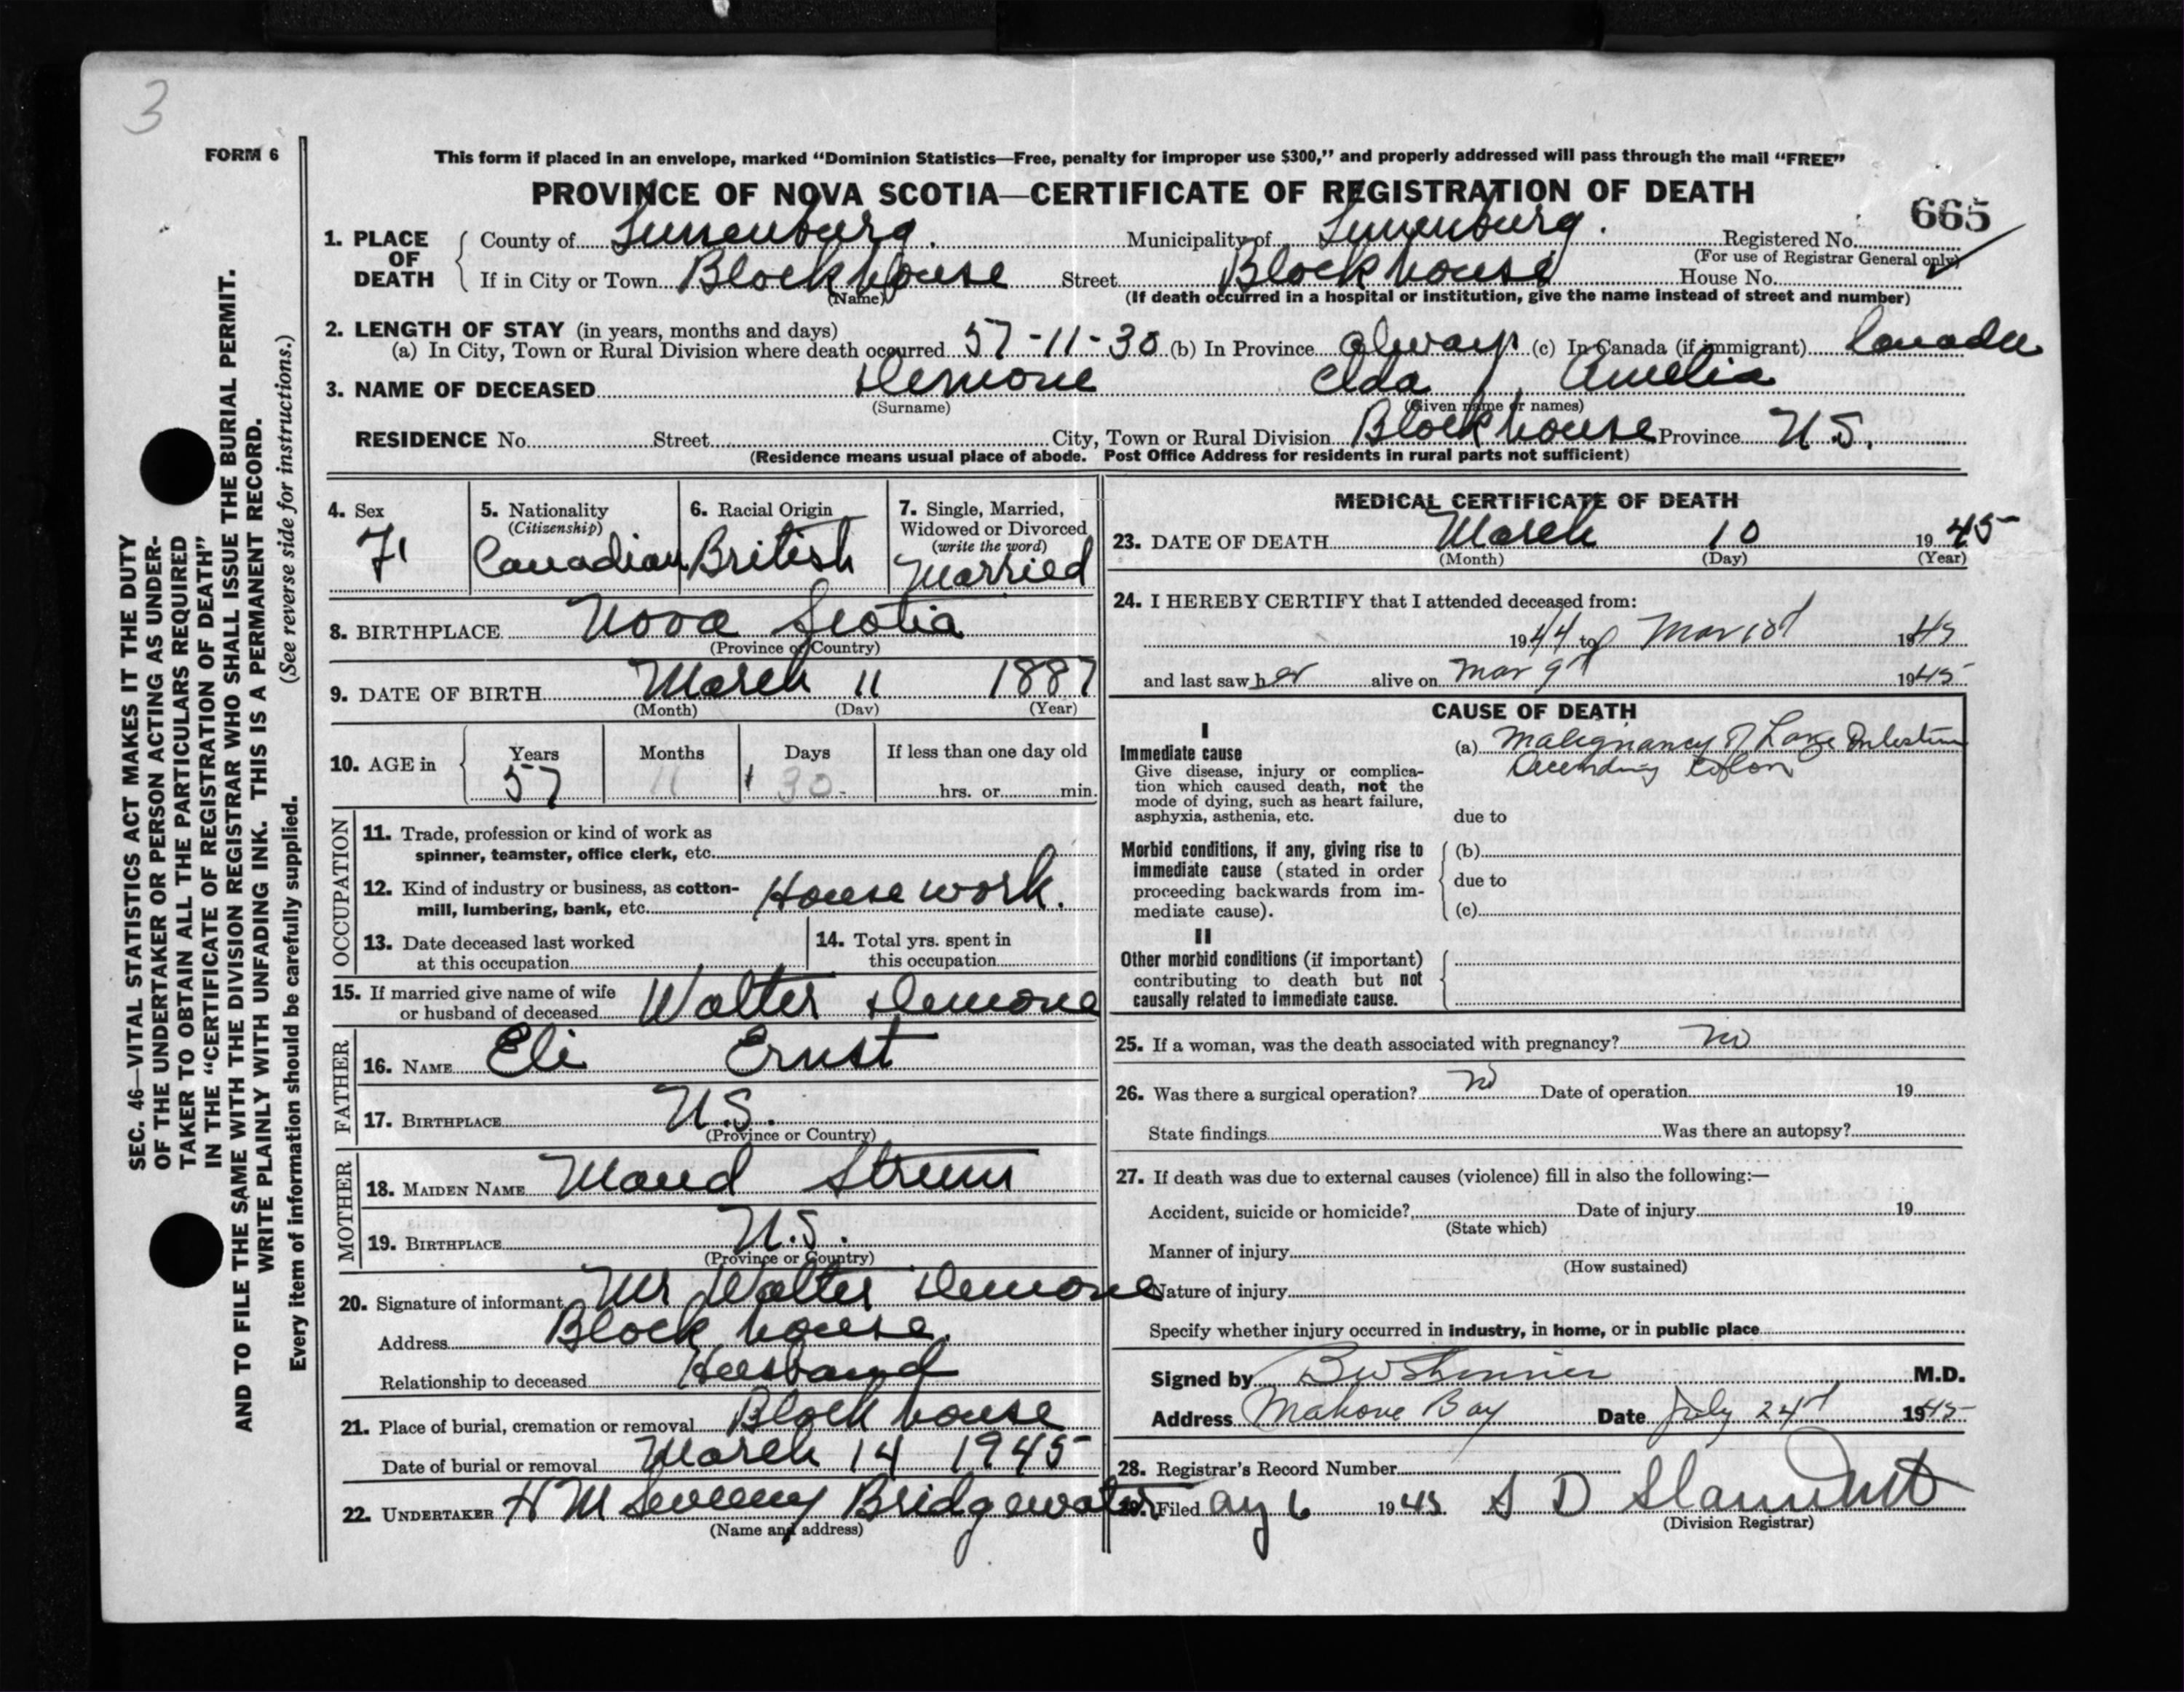 3
FORM 6
This form if placed in an envelope, marked “Dominion Statistics—Free, penalty for improper use $300,” and properly addressed will pass through the mail “FREE”
PROVINCE OF NOVA SCOTIA—CERTIFICATE OF REGISTRATION OF DEATH
665
1. PLACE OF DEATH
County of Lunenburg. Municipality of Lunenburg. Registered No.
(For use of Registrar General only)
If in City or Town Blockhouse Street Blockhouse House No.
(Name) (If death occurred in a hospital or institution, give the name instead of street and number)
2. LENGTH OF STAY (in years, months and days)
(a) In City, Town or Rural Division where death occurred 57-11-30 (b) In Province always (c) In Canada (if immigrant) Canada
3. NAME OF DECEASED Demone Elda Amelia
(Surname) (Given name or names)
RESIDENCE No. Street City, Town or Rural Division Blockhouse Province N.S.
(Residence means usual place of abode. Post Office Address for residents in rural parts not sufficient)
4. Sex
F
5. Nationality
(Citizenship)
Canadian
6. Racial Origin
British
7. Single, Married,
Widowed or Divorced
(write the word)
Married
8. BIRTHPLACE Nova Scotia
(Province or Country)
9. DATE OF BIRTH March 11 1887
(Month) (Day) (Year)
10. AGE in Years Months Days If less than one day old
57 11 30 hrs. or min.
OCCUPATION
11. Trade, profession or kind of work as
spinner, teamster, office clerk, etc.
12. Kind of industry or business, as cotton-
mill, lumbering, bank, etc. House work.
13. Date deceased last worked
at this occupation
14. Total yrs. spent in
this occupation
15. If married give name of wife
or husband of deceased Walter Demone
FATHER
16. NAME Eli Ernst
17. BIRTHPLACE N.S.
(Province or Country)
MOTHER
18. MAIDEN NAME Maud Strum
19. BIRTHPLACE N.S.
(Province or Country)
20. Signature of informant Mr Walter Demone
Address Block house.
Relationship to deceased Husband
21. Place of burial, cremation or removal Block house
Date of burial or removal March 14 1945
22. UNDERTAKER H M Sweeny Bridgewater
(Name and address)
MEDICAL CERTIFICATE OF DEATH
23. DATE OF DEATH March 10 1945
(Month) (Day) (Year)
24. I HEREBY CERTIFY that I attended deceased from:
1944 to Mar 10 1945
and last saw her alive on Mar 9 1945
CAUSE OF DEATH
I
Immediate cause
Give disease, injury or complica-
tion which caused death, not the
mode of dying, such as heart failure,
asphyxia, asthenia, etc.
(a) Malignancy of Large Intestine
Decending Colon
due to
Morbid conditions, if any, giving rise to
immediate cause (stated in order
proceeding backwards from im-
mediate cause).
(b)
due to
(c)
II
Other morbid conditions (if important)
contributing to death but not
causally related to immediate cause.
25. If a woman, was the death associated with pregnancy? No
26. Was there a surgical operation? No Date of operation 19
State findings Was there an autopsy?
27. If death was due to external causes (violence) fill in also the following:—
Accident, suicide or homicide? Date of injury 19
(State which)
Manner of injury
(How sustained)
Nature of injury
Specify whether injury occurred in industry, in home, or in public place
Signed by B W Skinner M.D.
Address Mahone Bay Date July 24 1945
28. Registrar's Record Number
29. Filed Aug 6 1945 S D
(Division Registrar)
SEC. 46—VITAL STATISTICS ACT MAKES IT THE DUTY
OF THE UNDERTAKER OR PERSON ACTING AS UNDER-
TAKER TO OBTAIN ALL THE PARTICULARS REQUIRED
IN THE “CERTIFICATE OF REGISTRATION OF DEATH”
AND TO FILE THE SAME WITH THE DIVISION REGISTRAR WHO SHALL ISSUE THE BURIAL PERMIT.
WRITE PLAINLY WITH UNFADING INK. THIS IS A PERMANENT RECORD.
Every item of information should be carefully supplied. (See reverse side for instructions.)